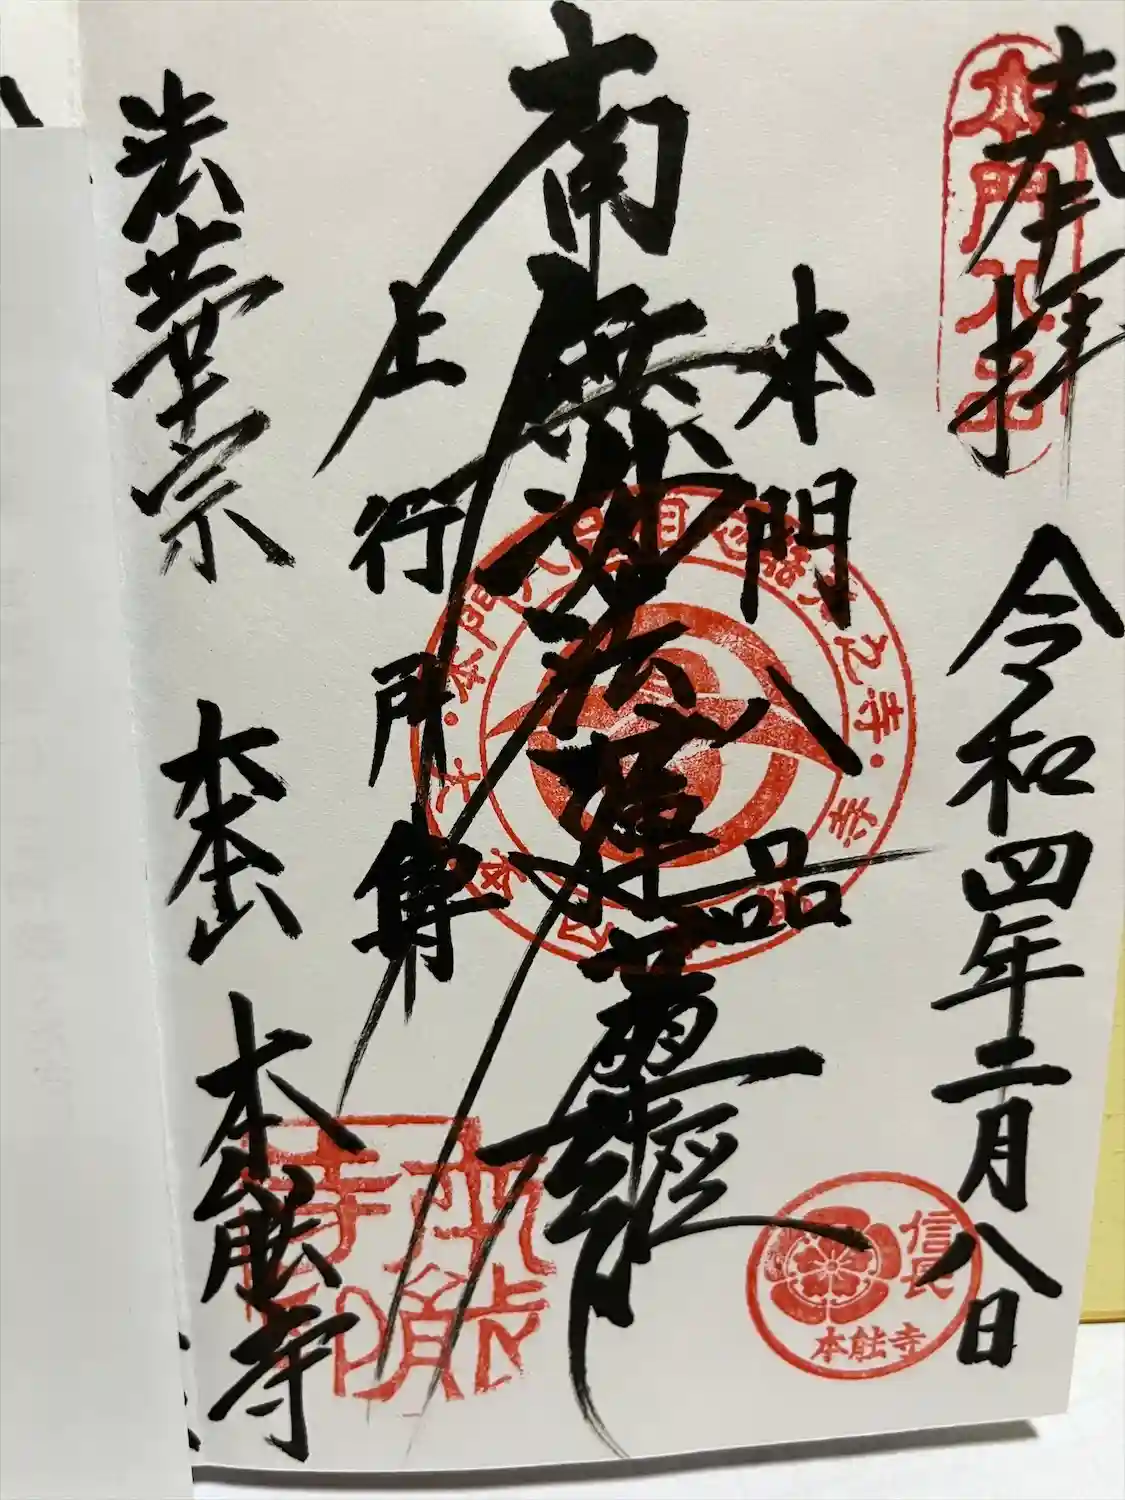 奉拝
本門八品
令和四年二月八日
本門八品
南無妙法蓮華經
上行所傳
信長
本能寺
法華宗 大本山 本能寺